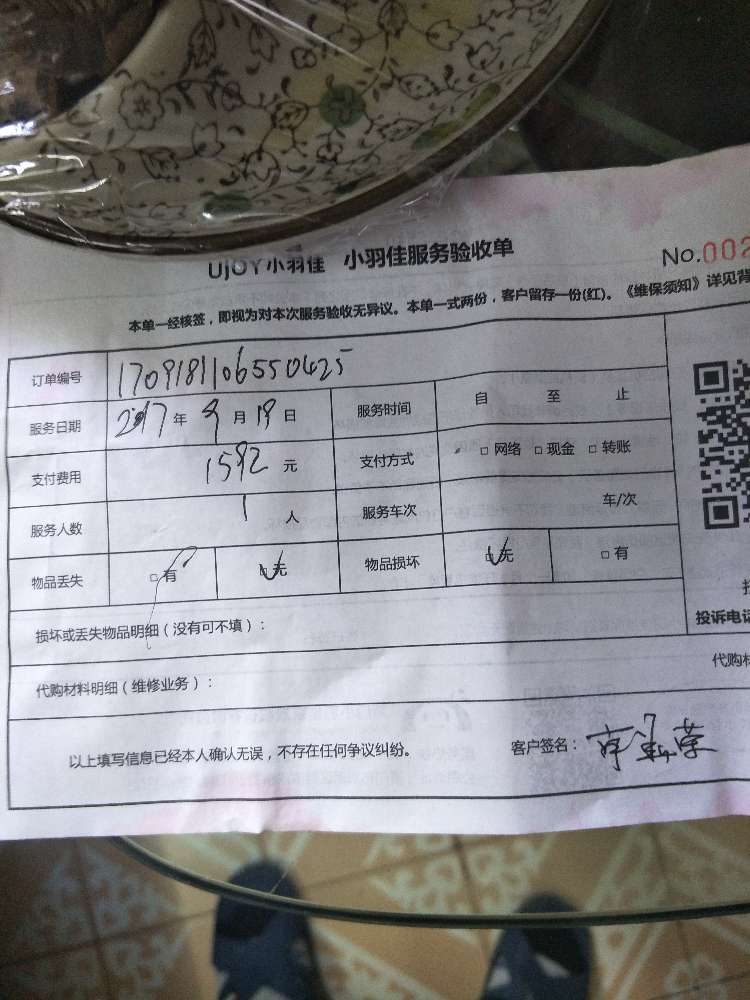 UJOY小羽佳 小羽佳服务验收单
No.002
本单一经核签，即视为对本次服务验收无异议。本单一式两份，客户留存一份(红)。《维保须知》详见背
订单编号 1709181106550425
服务日期 2017 年 9 月 19 日 服务时间 自 至 止
支付费用 1592 元 支付方式 □ 网络 □ 现金 □ 转账
服务人数 1 人 服务车次 车/次
物品丢失 □ 有 □ 无 物品损坏 □ 无 □ 有
损坏或丢失物品明细（没有可不填）：
投诉电话
代购材料明细（维修业务）：
代购材
以上填写信息已经本人确认无误，不存在任何争议纠纷。 客户签名：